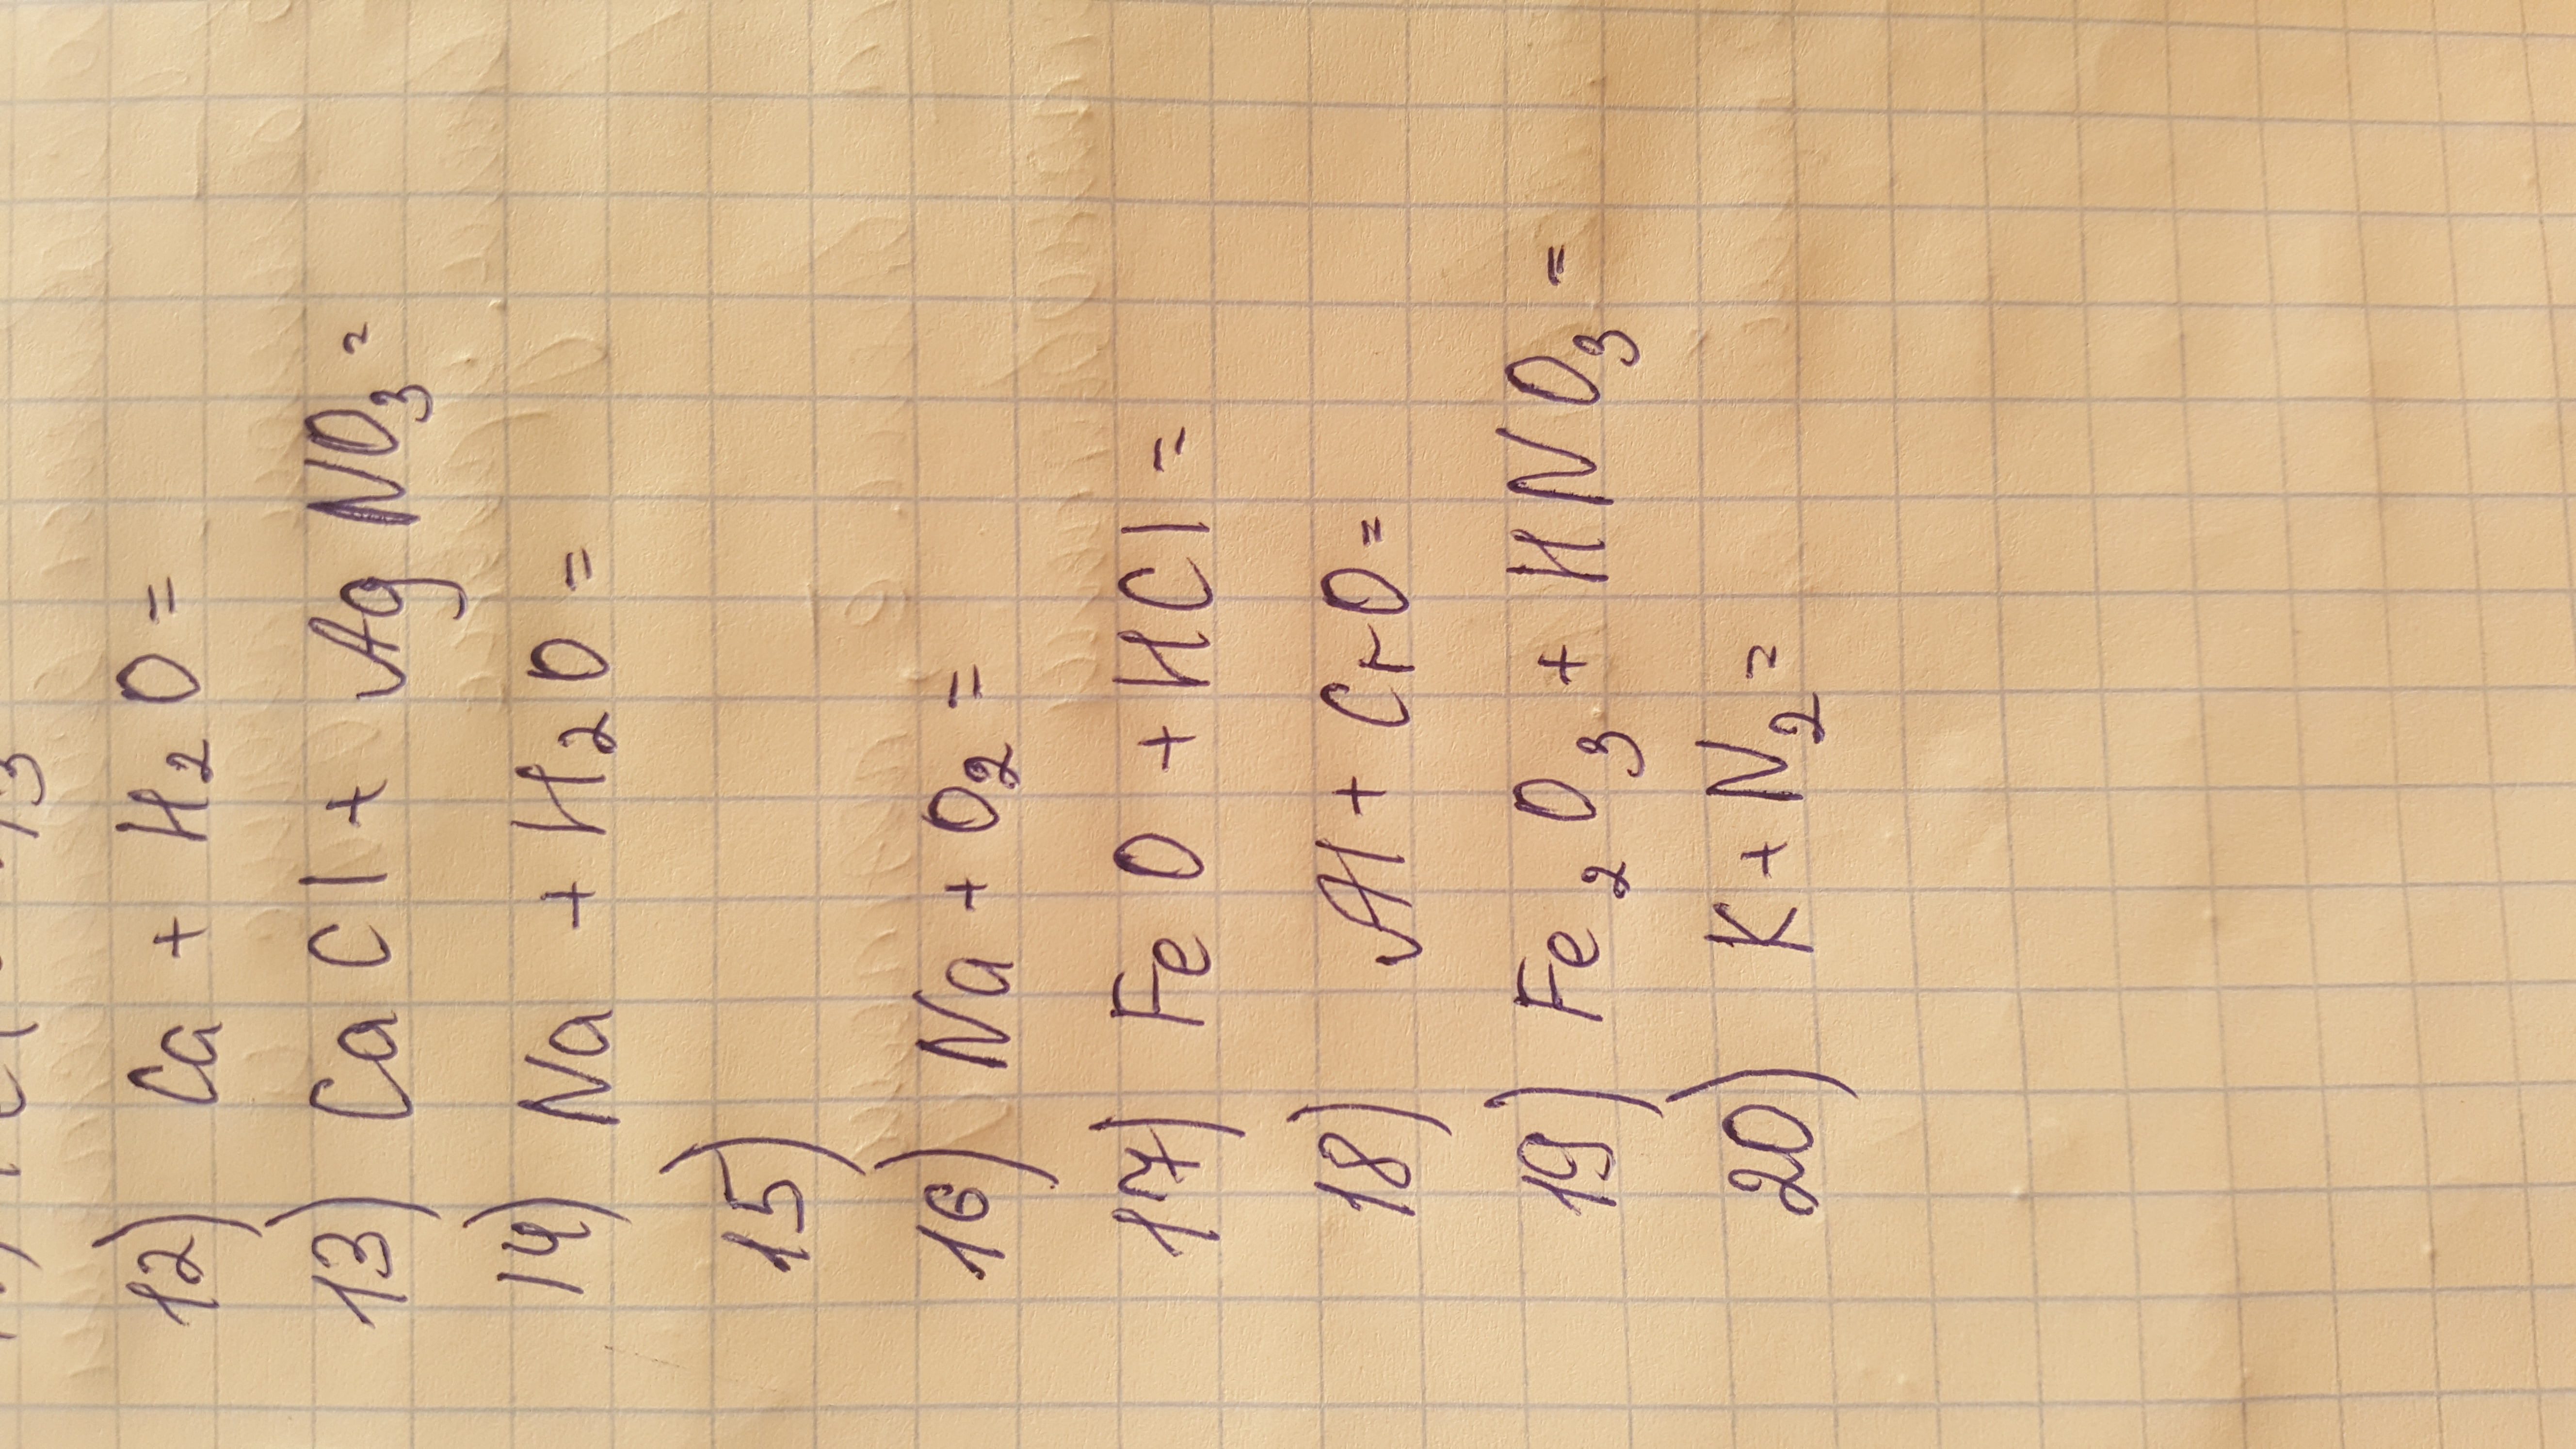 12) Ca + H₂O =
13) CaCl + AgNO₃ =
14) Na + H₂O =
15)
16) Na + O₂ =
17) FeO + HCl =
18) Al + CrO =
19) Fe₂O₃ + HNO₃ =
20) K + N₂ =